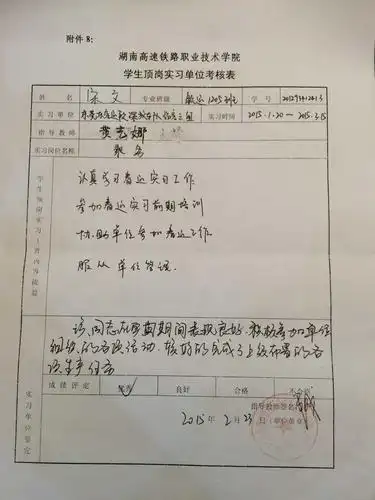 附件8:
湖南高速铁路职业技术学院
学生顶岗实习单位考核表
姓 名 梁文 专业班级 1205班 学 号
实习单位 实习时间 2015.1.20—2015.3.15
指导教师 黄志娜
实习岗位名称 乘务
学生顶岗实习工作内容概要
认真学习春运实习工作
参加春运实习前期培训
协助单位参加春运工作
服从单位管理.
实习单位鉴定
该同志在实习期间表现良好,积极参加单位
组织的各项活动,较好的完成了上级布置的各
项生产任务
成绩评定 优秀 良好 合格 不合格
指导教师签名
2015年2月23日(单位盖章)